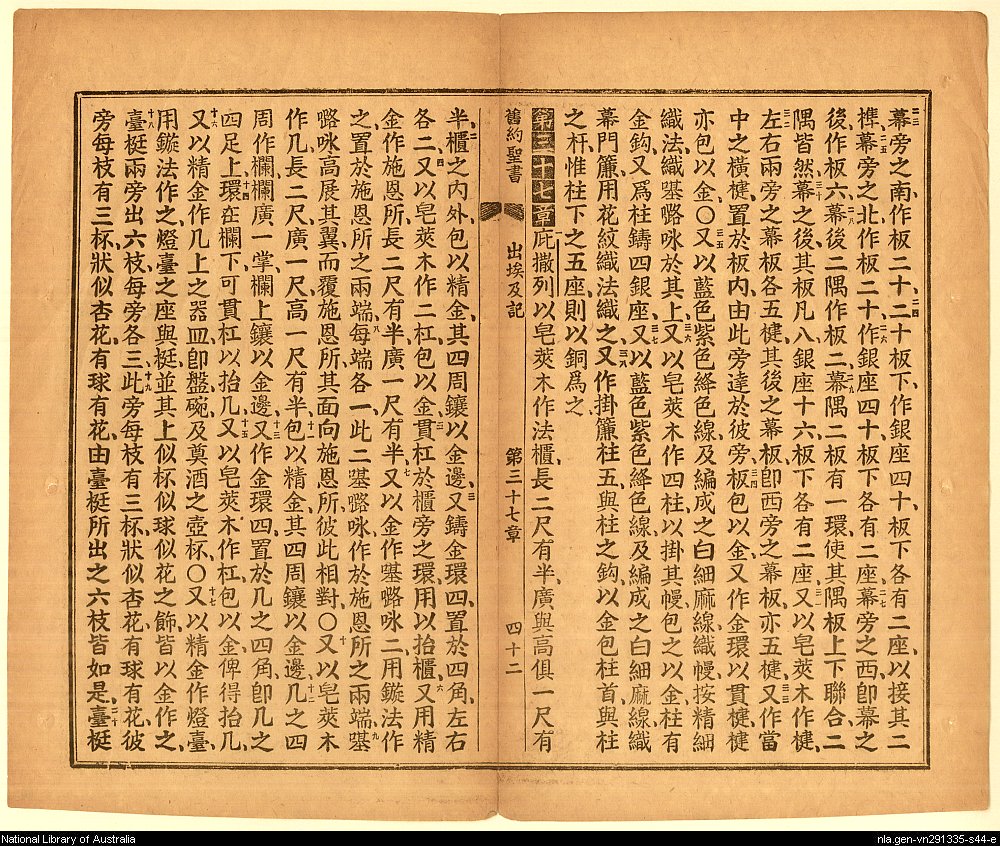 幕旁之南、作板二十、二十板下、作銀座四十、板下各有二座、以接其二
榫、幕旁之北、作板二十、作銀座四十、板下各有二座、幕旁之西、卽幕之
後、作板六、幕後二隅、作板二、幕隅二板有一環、使其隅板上下聯合、二
隅皆然、幕之後、其板凡八、銀座十六、板下各有二座、又以皂莢木作楗、
左右兩旁之幕板各五楗、其後之幕板、卽西旁之幕板、亦五楗、又作當
中之橫楗、置於板內、由此旁達於彼旁、板包以金、又作金環以貫楗、楗
亦包以金、〇又以藍色紫色絳色線、及編成之白細麻線織幔、按精細
織法、織𠼻嚕咏於其上、又以皂莢木作四柱、以掛其幔、包之以金、柱有
金鈎、又爲柱鑄四銀座、又以藍色紫色絳色線、及編成之白細麻線、織
幕門簾、用花紋織法織之、又作掛簾柱五、與柱之鈎、以金包柱首、與柱
之杆、惟柱下之五座、則以銅爲之、
第三十七章 庇撒列以皂莢木作法櫃、長二尺有半、廣與高俱一尺有
舊約聖書 出埃及記 第三十七章 四十二
半、櫃之內外、包以精金、其四周鑲以金邊、又鑄金環四、置於四角、左右
各二、又以皂莢木作二杠、包以金、貫杠於櫃旁之環、用以抬櫃、又用精
金作施恩所、長二尺有半、廣一尺有半、又以金作𠼻嚕咏二、用鏇法作
之、置於施恩所之兩端、每端各一、此二𠼻嚕咏、作於施恩所之兩端、𠼻
嚕咏高展其翼、而覆施恩所、其面向施恩所、彼此相對、〇又以皂莢木
作几、長二尺、廣一尺、高一尺有半、包以精金、其四周鑲以金邊、几之四
周作欄、欄廣一掌、欄上鑲以金邊、又作金環四、置於几之四角、卽几之
四足上、環在欄下、可貫杠以抬几、又以皂莢木作杠、包以金、俾得抬几、
又以精金作几上之器皿、卽盤碗及奠酒之壺杯、〇又以精金作燈臺、
用鏇法作之、燈臺之座與梃、並其上似杯似球似花之飾、皆以金作之、
臺梃兩旁出六枝、每旁各三、此旁每枝有三杯、狀似杏花、有球有花、彼
旁每枝有三杯、狀似杏花、有球有花、由臺梃所出之六枝皆如是、臺梃
National Library of Australia
nla.gen-vn291335-s44-e